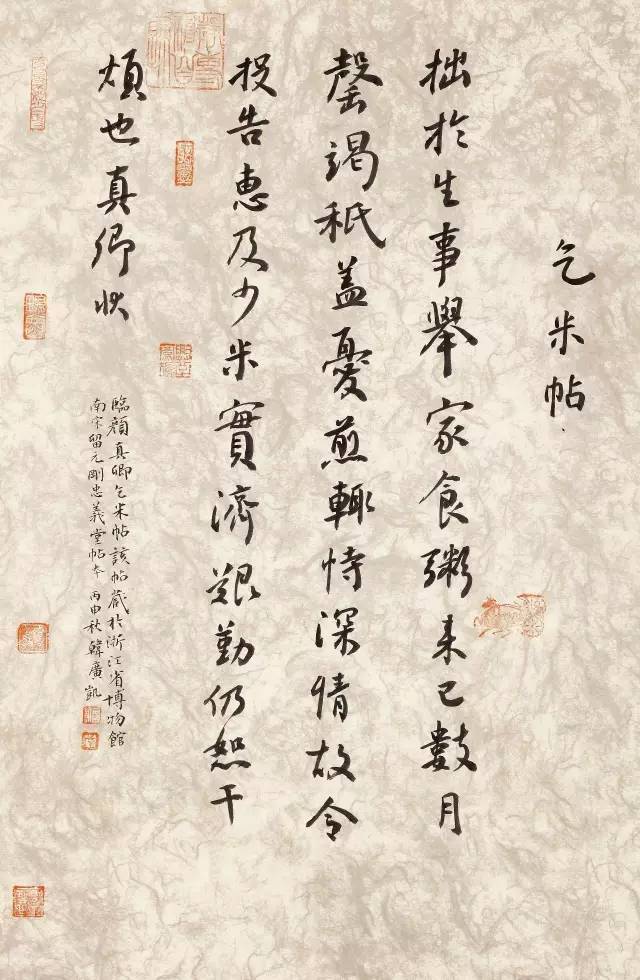 乞米帖
拙於生事舉家食粥来已數月
罄竭秖盖憂煎輙恃深情故令
投告惠及少米實濟艱勤仍恕干
煩也真卿状
臨顔真卿乞米帖該帖藏於浙江省博物館
南宋留元剛忠義堂帖本 丙申秋韓廣凱